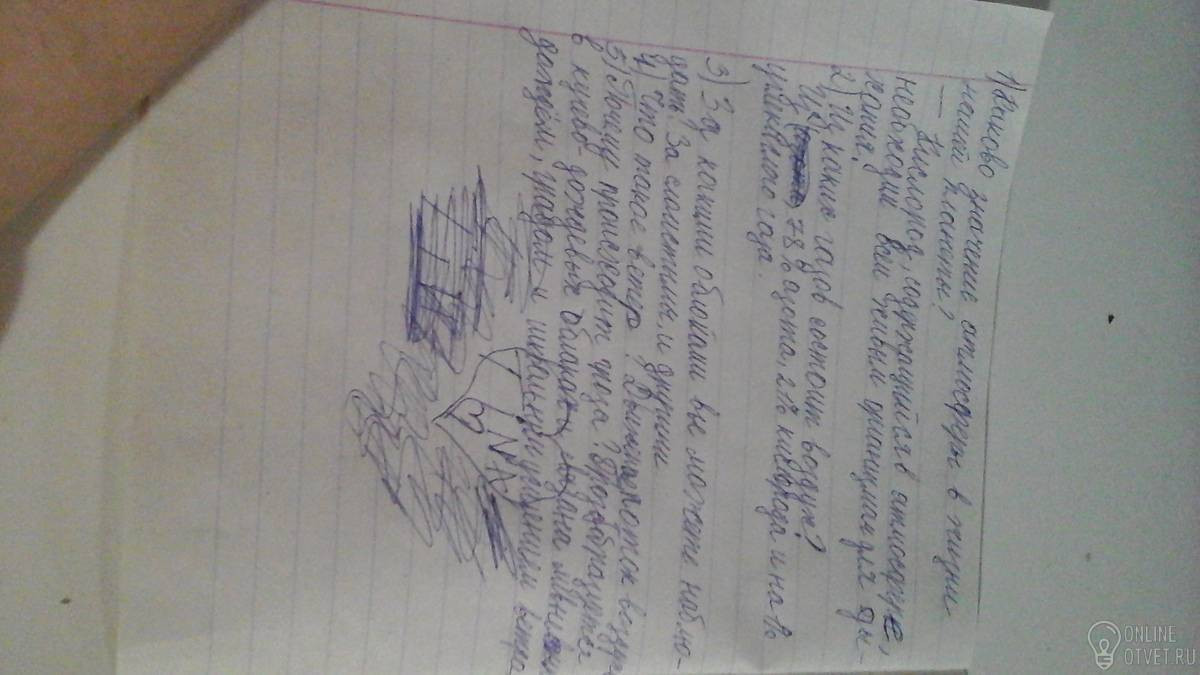 1) Каково значение атмосферы в жизни
нашей планеты?
— Кислород, содержащийся в атмосфере,
необходим всем живым организмам для ды-
хания.
2) Из каких газов состоит воздух?
Из 78% азота, 21% кислорода и 1%
углекислого газа.
3) За какими облаками вы можете наблю-
дать? За слоистыми и другими
4) Что такое ветер? Движ поток воздуха
5) Почему происходит гроза? Гроза образуется
в кучево-дождевых облаках связана
дождём, градом и шквальным усилением ветра
ONLINE
OTVET.RU